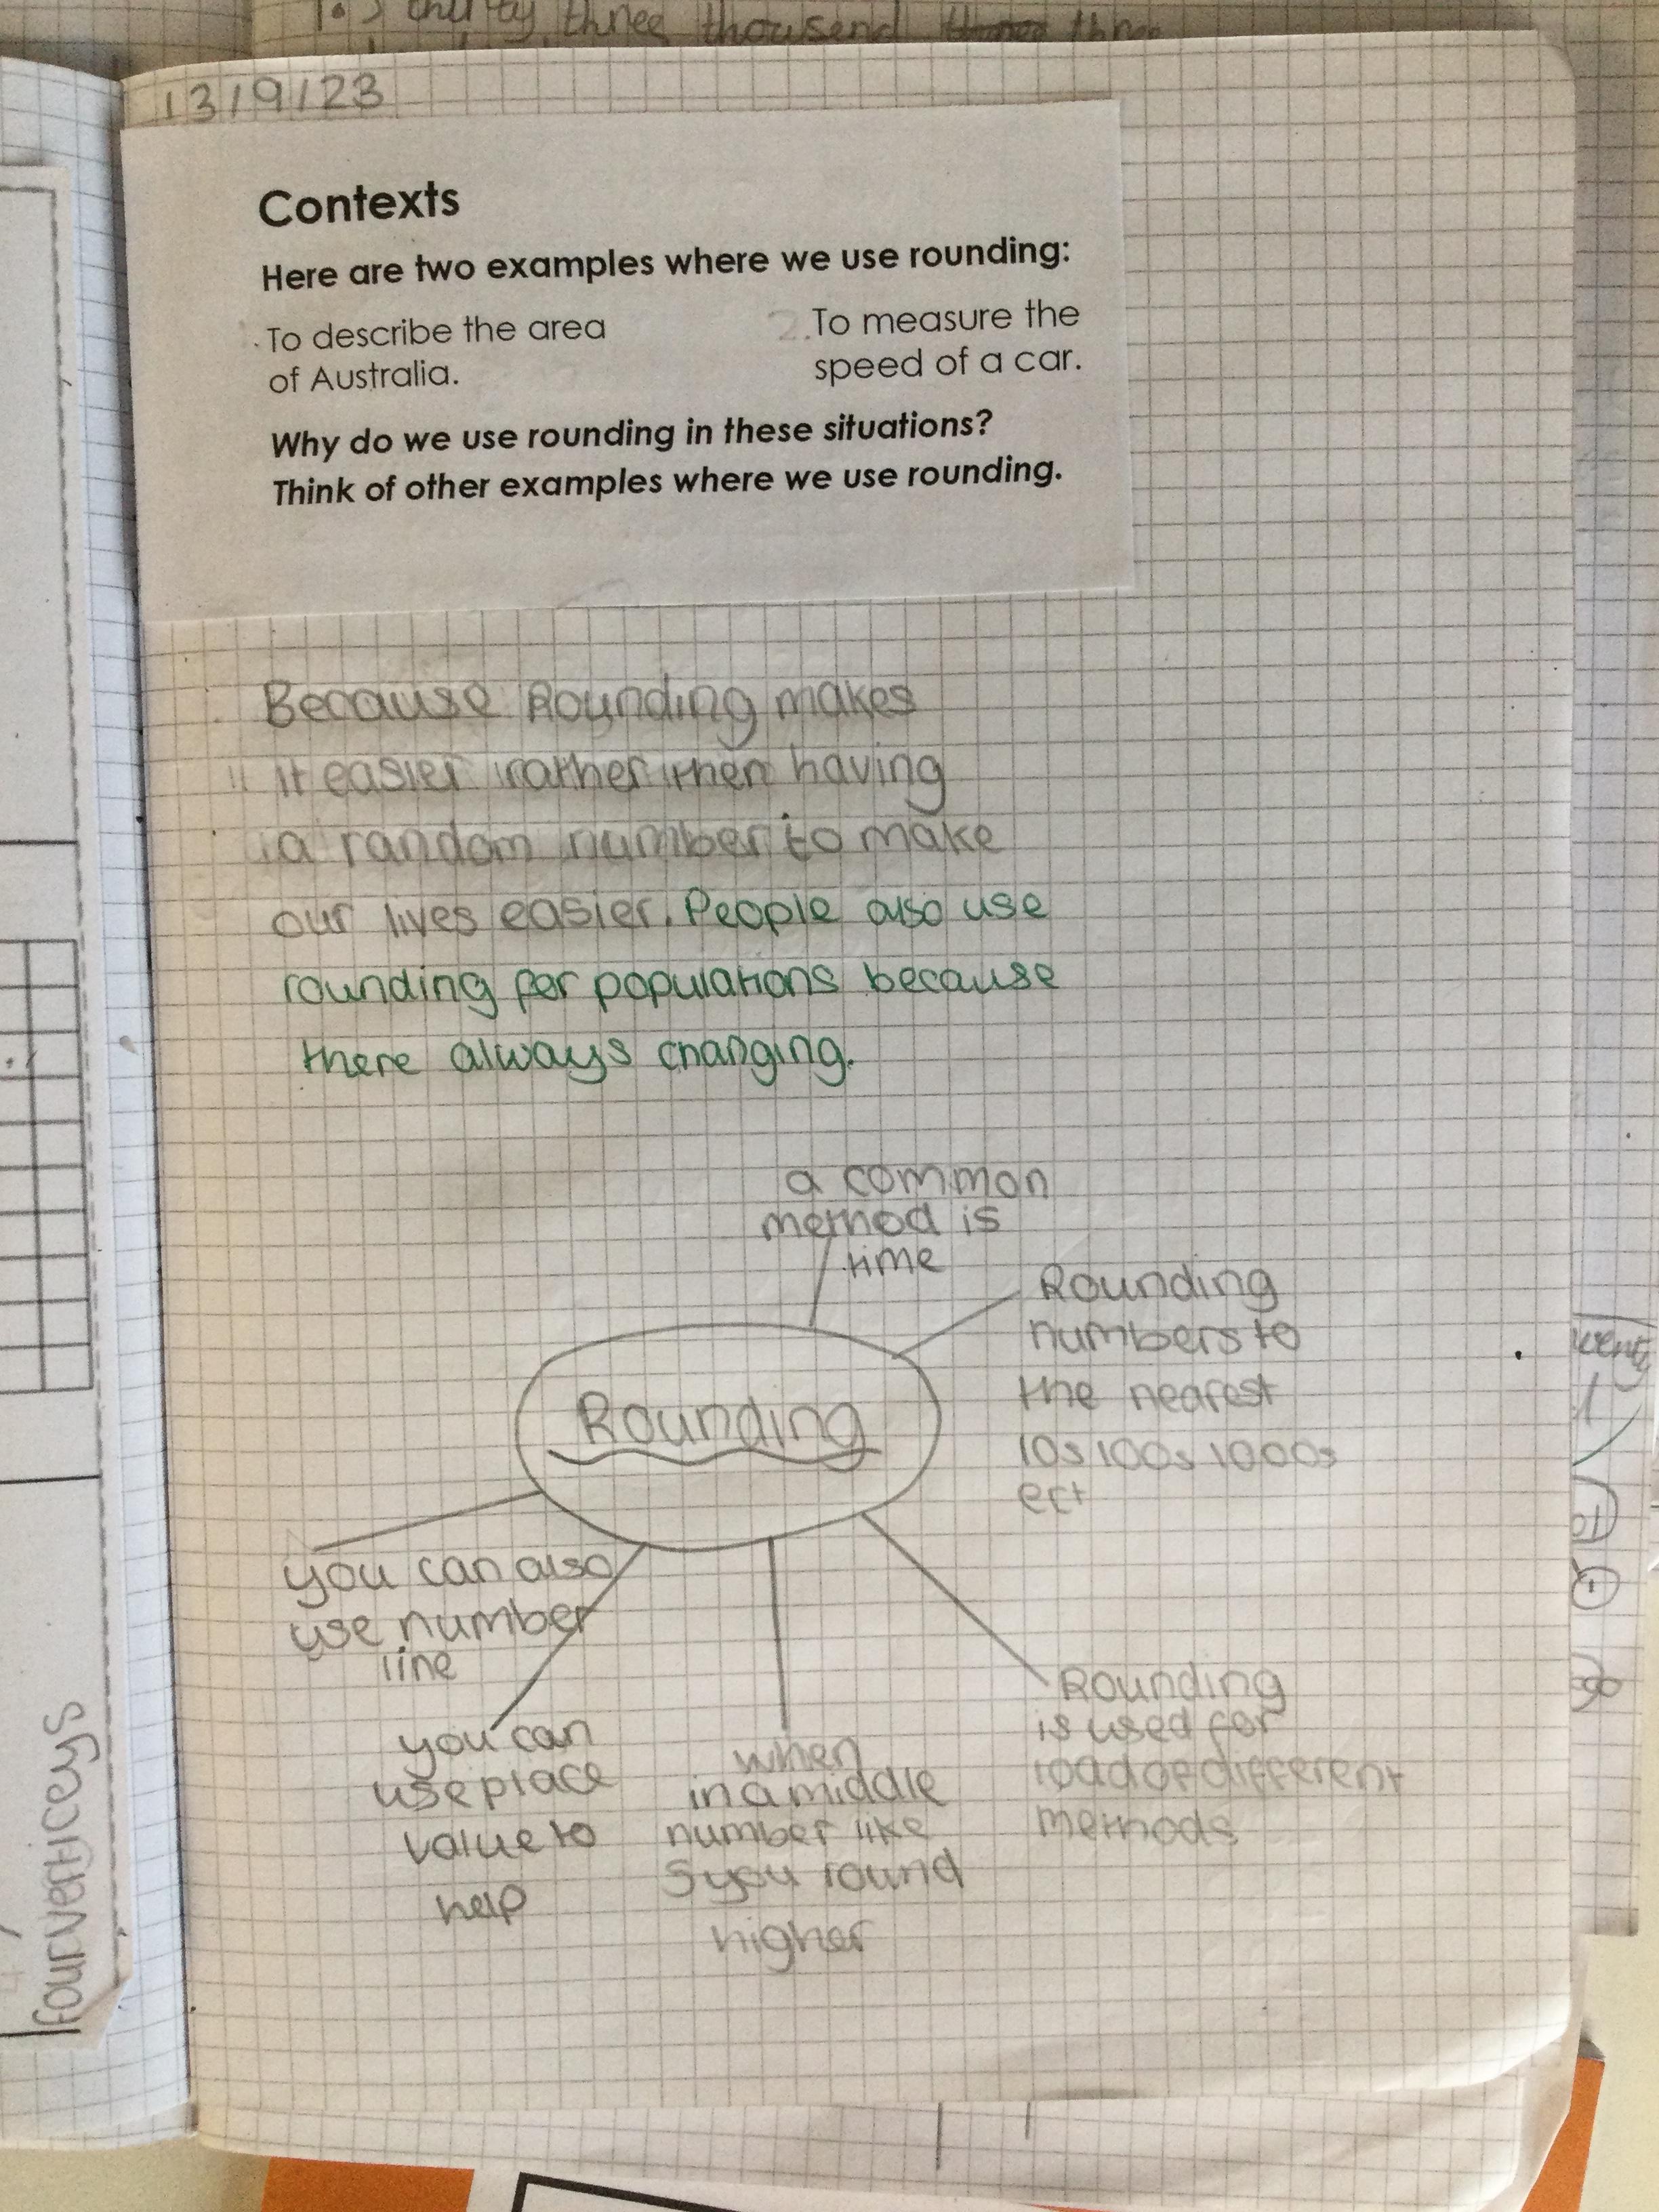 thirty three thousend three
13/9/23
Contexts
Here are two examples where we use rounding:
To describe the area
of Australia.
2. To measure the
speed of a car.
Why do we use rounding in these situations?
Think of other examples where we use rounding.
Because Rounding makes
it easier rather then having
a random number to make
our lives easier. People also use
rounding for populations because
there always changing.
a common
method is
time
Rounding
numbers to
the nearest
10s 100s 1000s
ect
Rounding
you can also
use number
line
you can
use place
value to
help
when
in a middle
number like
5 you round
higher
Rounding
is used for
load of different
methods
four verticeys